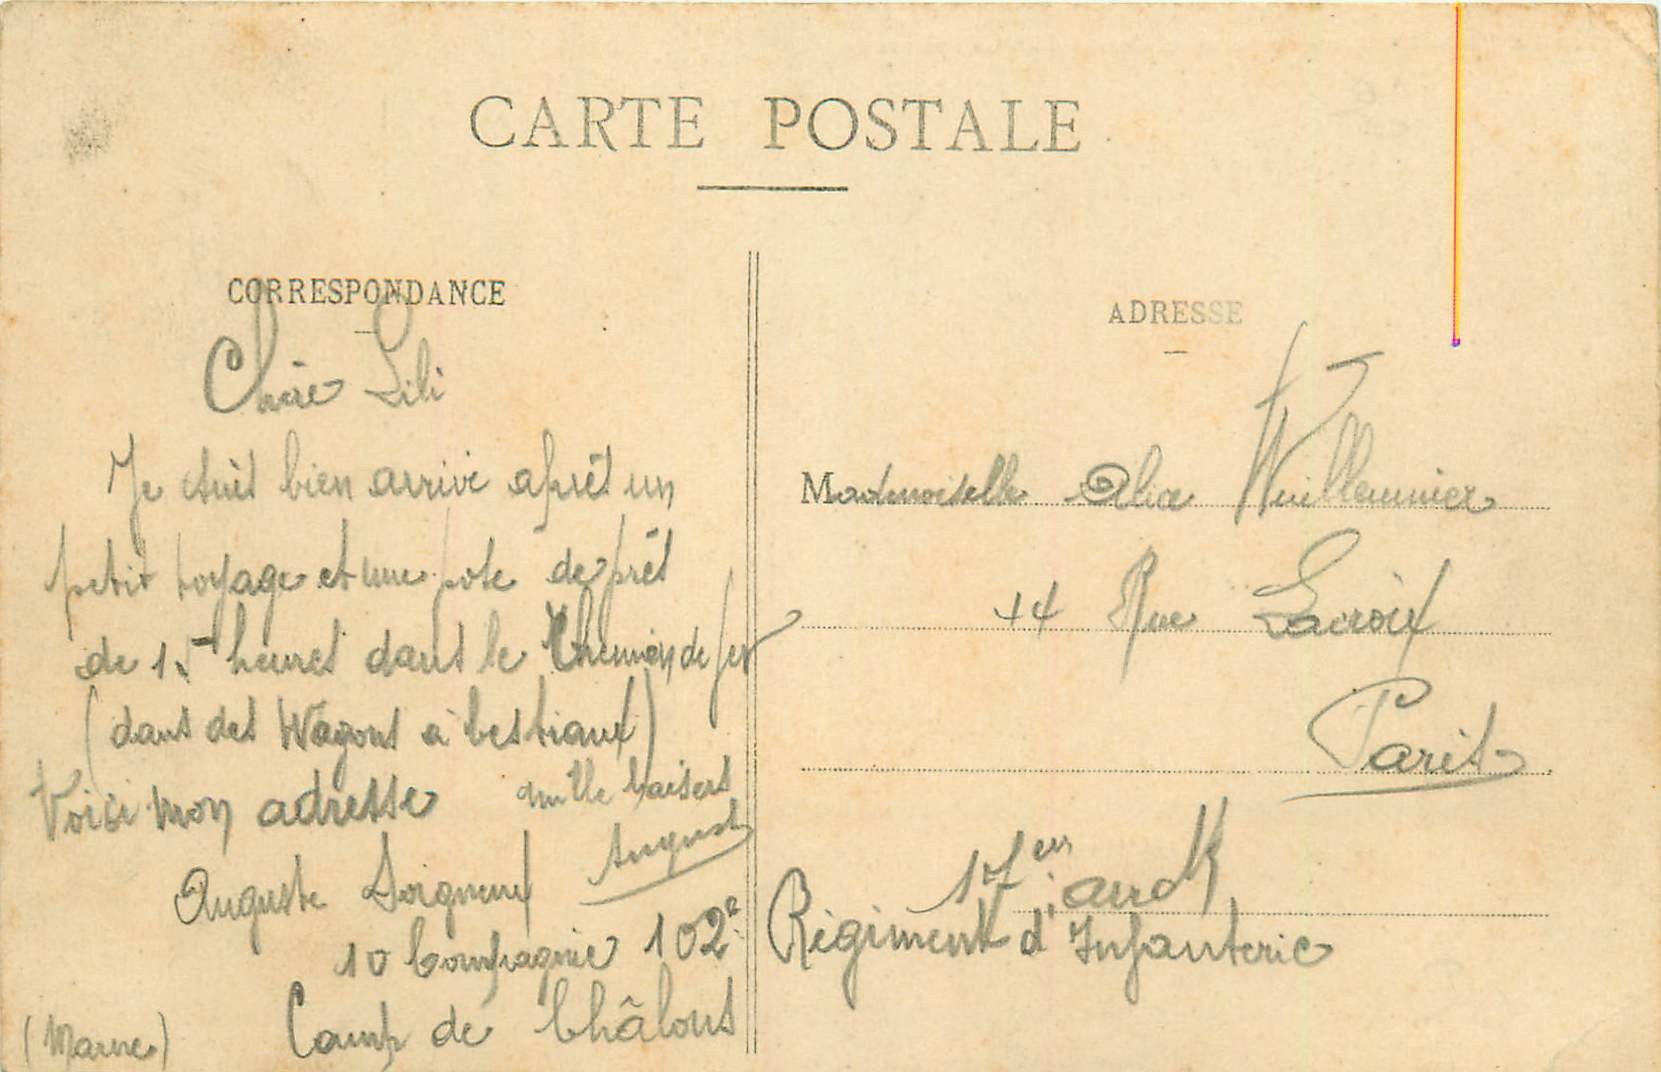 CARTE POSTALE
CORRESPONDANCE
Chère Lili
Je suis bien arrivé après un
petit voyage et une pose de près
de 15 heures dans le Chemin de fer
(dans des Wagons à bestiaux)
Voici mon adresse mille baisers
Auguste
Auguste Soigneux
10 Compagnie 102e Régiment d'Infanterie
Camp de Châlons
(Marne)
ADRESSE
Mademoiselle Alice Wuillaumier
14 Rue Lacroix
Paris
17em arrdt